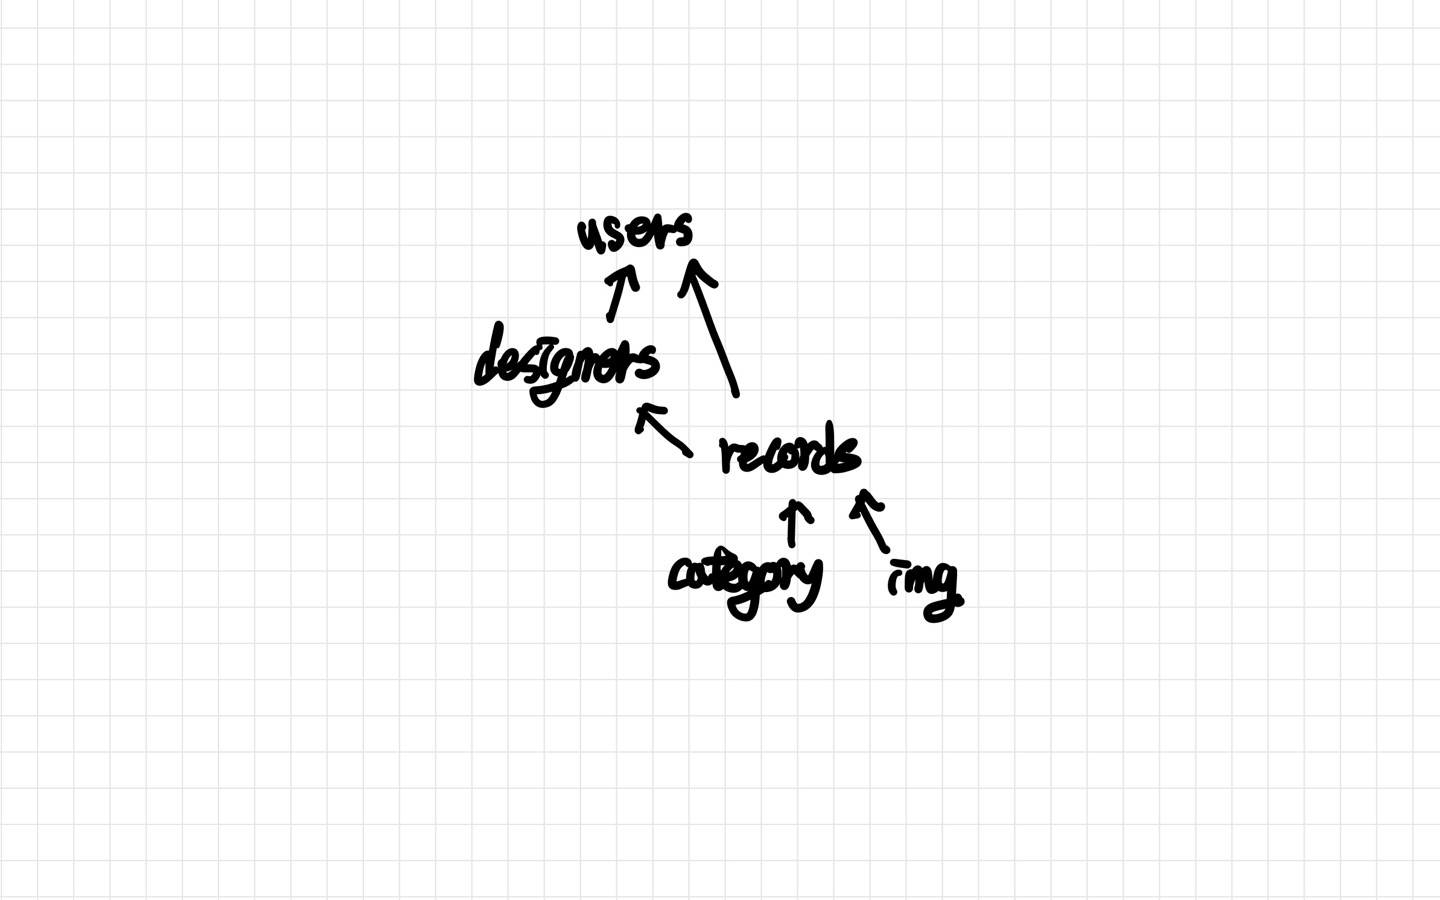 users
designers
records
category
img